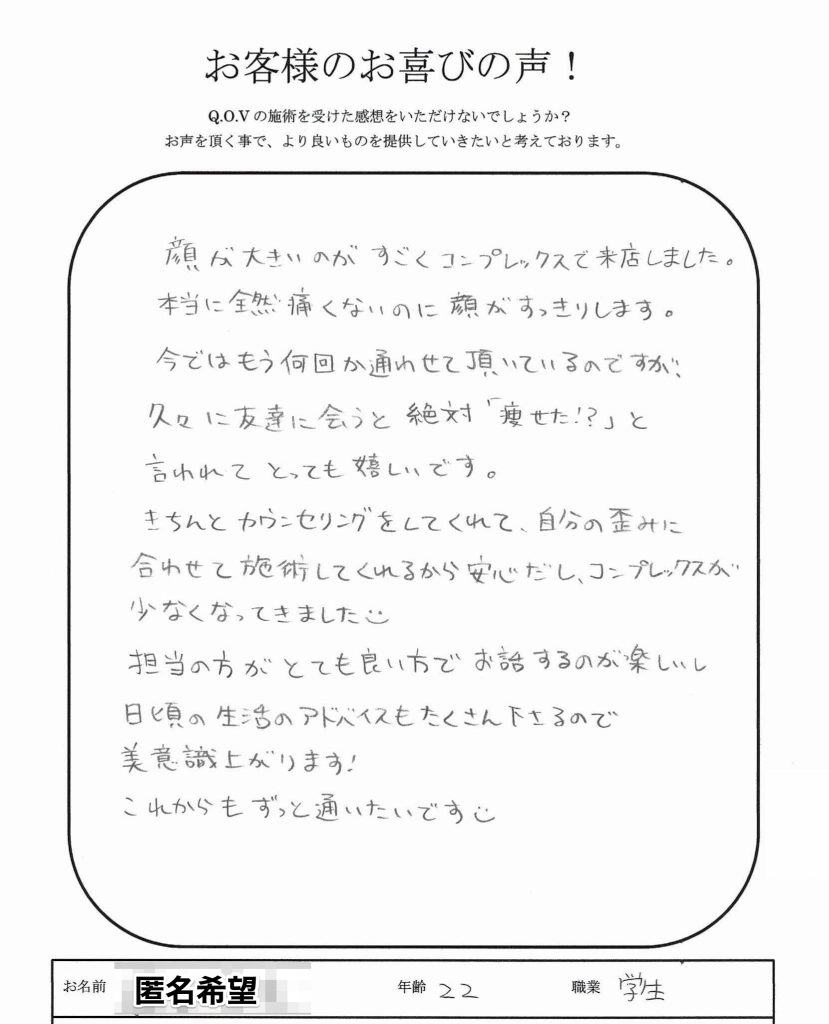 お客様のお喜びの声！
Q.O.Vの施術を受けた感想をいただけないでしょうか？
お声を頂く事で、より良いものを提供していきたいと考えております。
顔が大きいのがすごくコンプレックスで来店しました。
本当に全然痛くないのに顔がすっきりします。
今ではもう何回か通わせて頂いているのですが、
久々に友達に会うと絶対「痩せた!?」と
言われてとっても嬉しいです。
きちんとカウンセリングをしてくれて、自分の歪みに
合わせて施術してくれるから安心だし、コンプレックスが
少なくなってきました
担当の方がとても良い方でお話するのが楽しいし
日頃の生活のアドバイスもたくさん下さるので
美意識上がります!
これからもずっと通いたいです
お名前 匿名希望 年齢 22 職業 学生